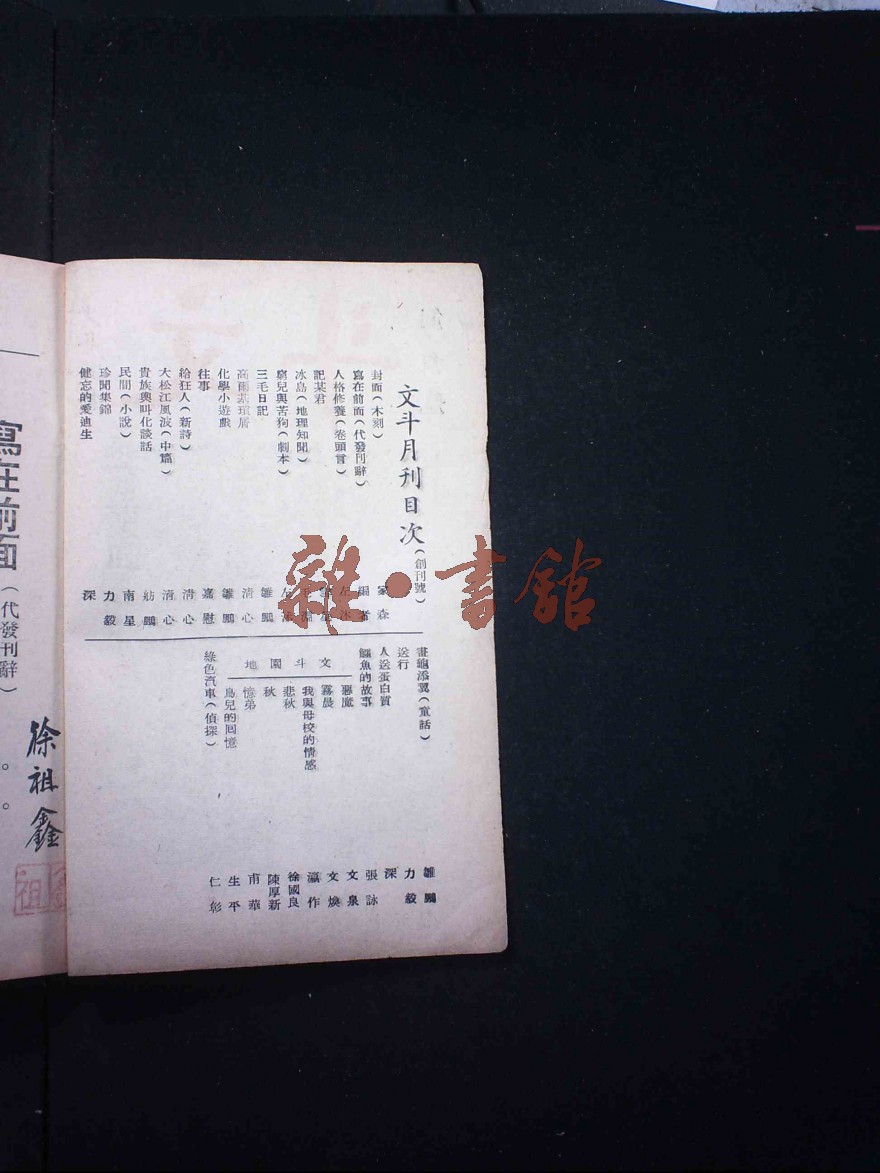 文斗月刊目次(創刊號)
封面(木刻)
寫在前面(代發刊辭)
人格修養(卷頭言)
記某君
冰島(地理知聞)
窮兒與苦狗(劇本)
三毛日記
高爾基瑣屑
化學小遊戲
往事
給狂人(新詩)
大松江風波(中篇)
貴族與叫化談話
民間(小說)
珍聞集錦
健忘的愛迪生
家森
編者
雛鵬
清心
雛鵬
嘉慰
清心
清心
舫鵬
南星
力毅
深
畫龜添翼(童話)
送行
人送蛋白質
鱷魚的故事
文斗園地
惡魔
霧晨
我與母校的情感
悲秋
秋
憶弟
鳥兒的回憶
綠色汽車(偵探)
雛鵬
力毅
深
張詠
文泉
文煥
瀛作
徐國良
陳厚新
甫華
生平
仁彰
雜·書館
寫在前面(代發刊辭)
徐祖鑫